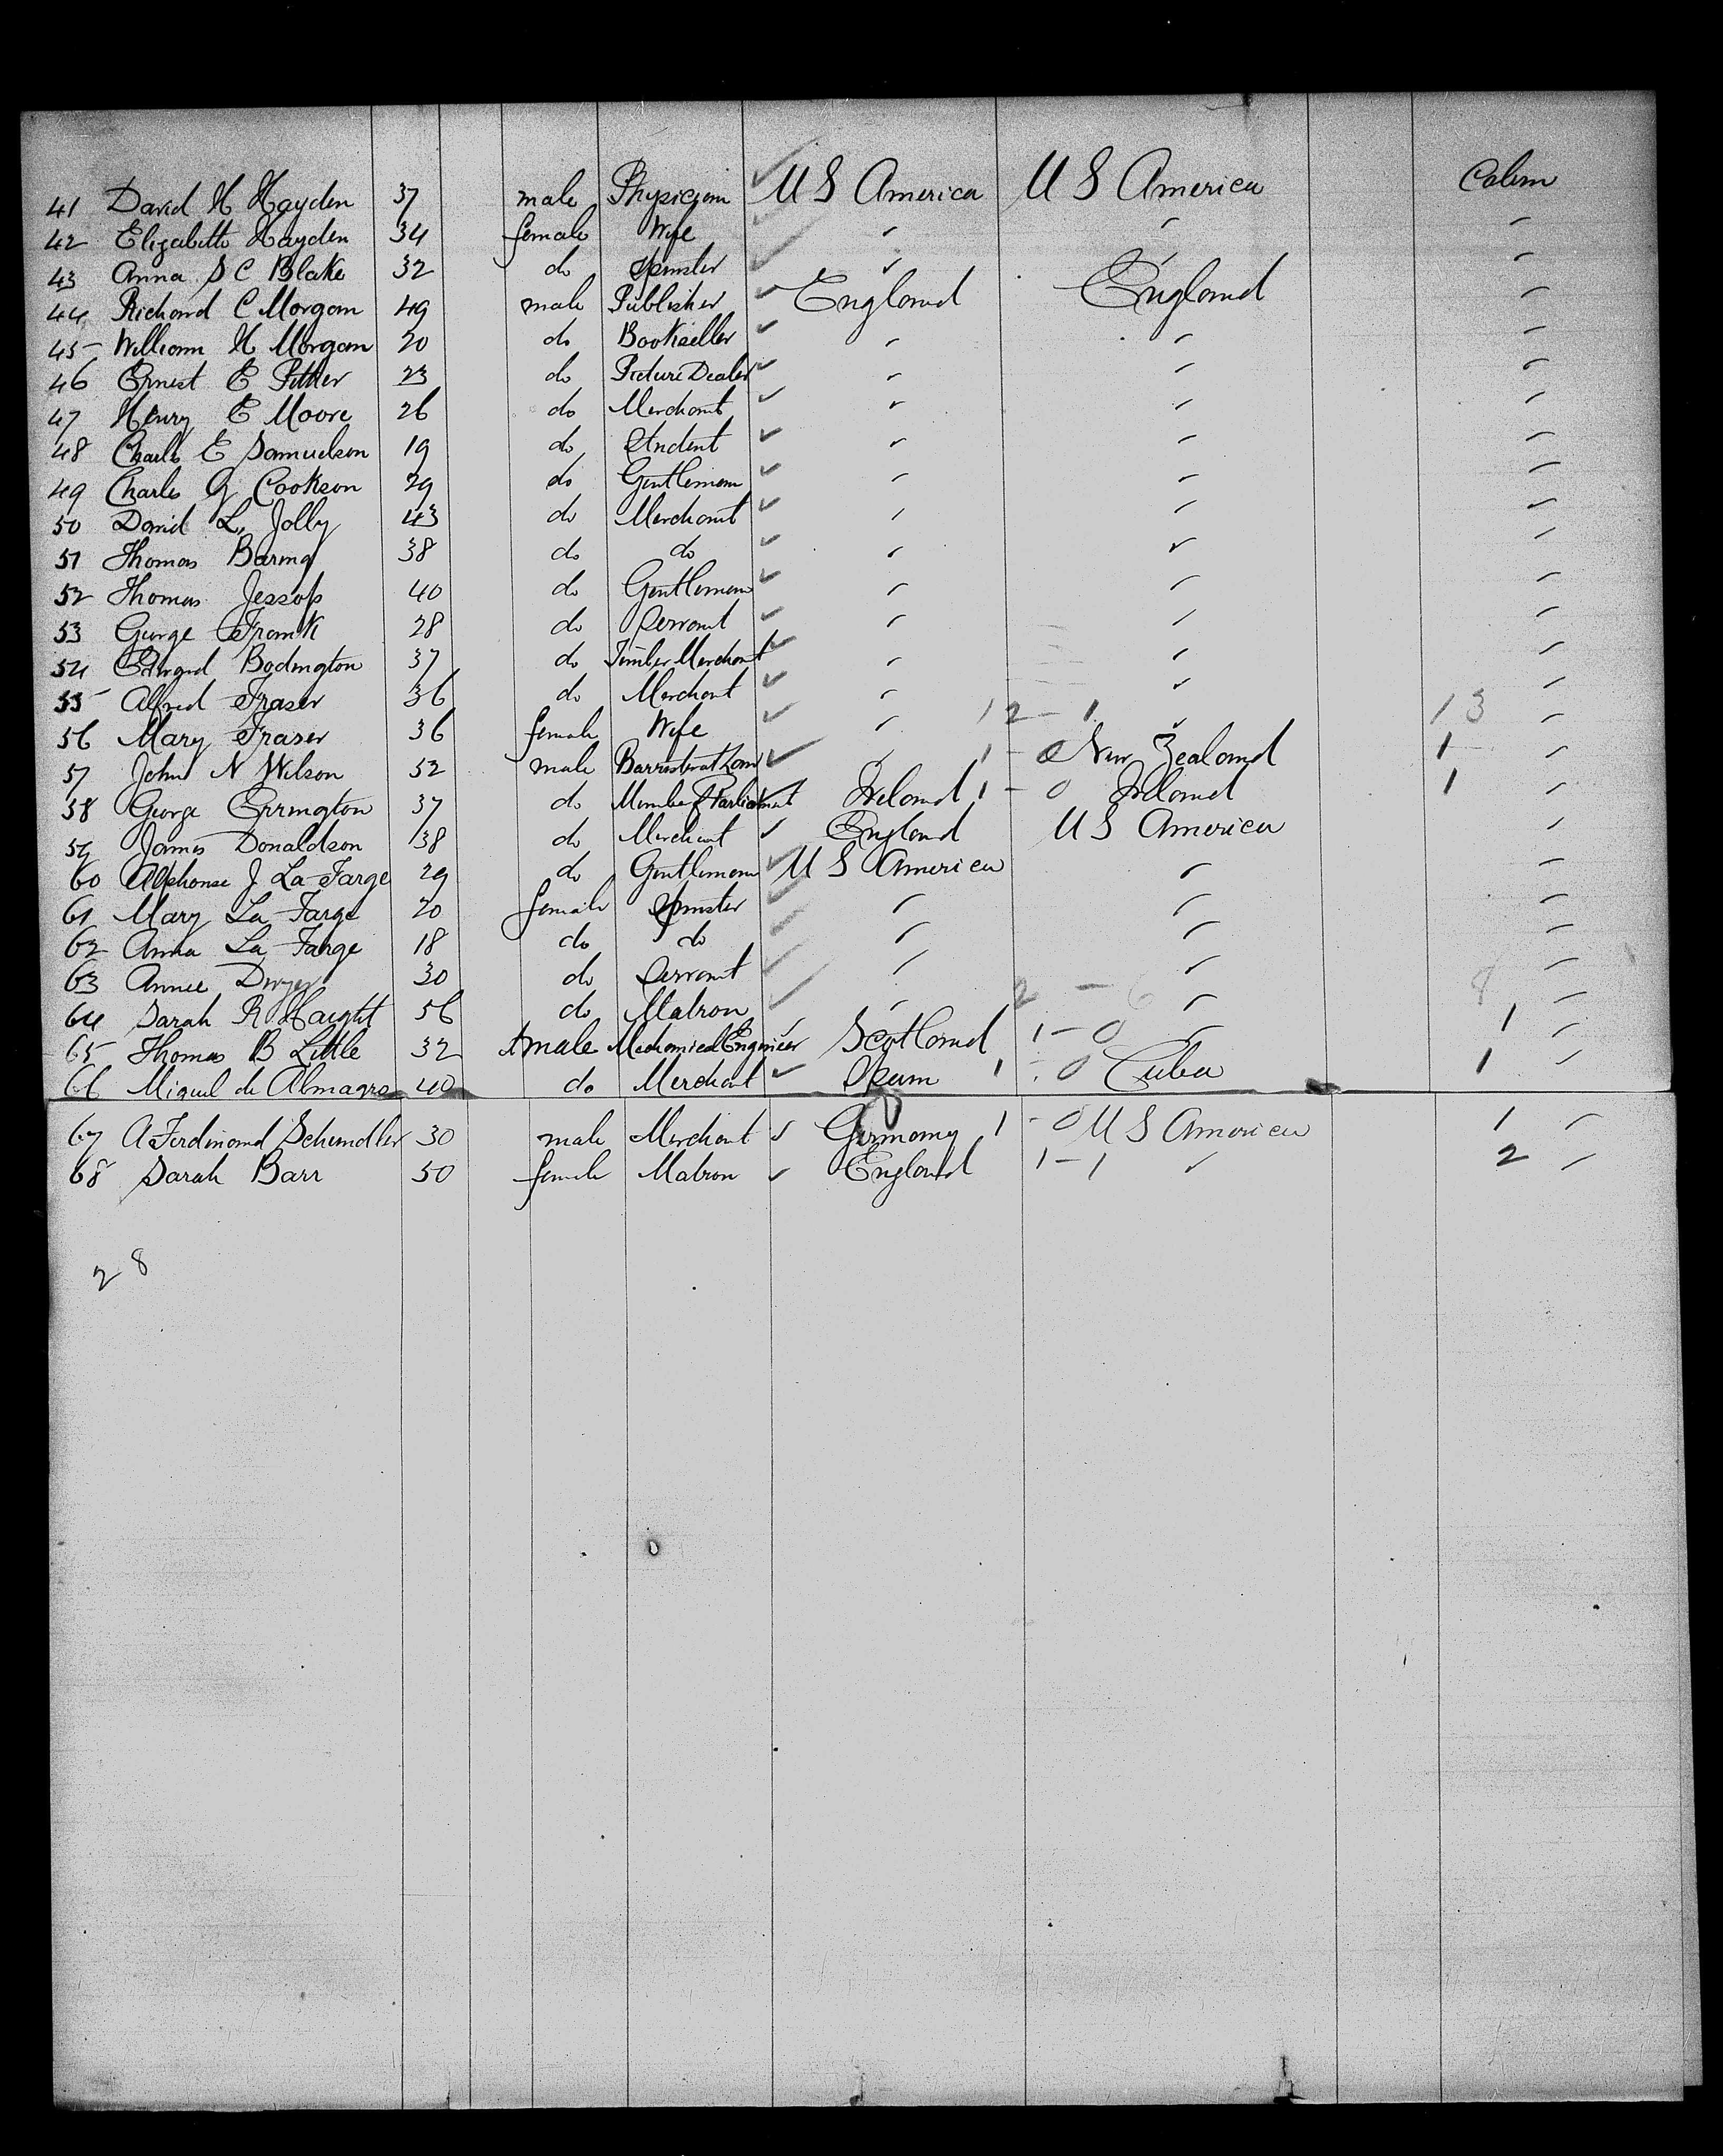 41 David H Hayden 37 male Physician ✓ U S America U S America Cabin
42 Elizabeth Hayden 34 female Wife ✓ " " "
43 Anna S C Blake 32 do Spinster ✓ " " "
44 Richard C Morgan 49 male Publisher ✓ England England "
45 William H Morgan 20 do Bookseller ✓ " " "
46 Ernest E 23 do Picture Dealer ✓ " " "
47 Henry E Moore 26 do Merchant ✓ " " "
48 Charles E Samuelson 19 do Student ✓ " " "
49 Charles G Cookson 29 do Gentleman ✓ " " "
50 David L Jolly 43 do Merchant ✓ " " "
51 Thomas Baring 38 do do ✓ " " "
52 Thomas Jessop 40 do Gentleman ✓ " " "
53 George Frank 28 do Servant ✓ " " "
54 Edward Bodington 37 do Timber Merchant ✓ " " "
55 Alfred Fraser 36 do Merchant ✓ " " "
56 Mary Fraser 36 female Wife ✓ " 12 - 1 " 13 "
57 John N Wilson 52 male Barrister at Law ✓ " 1 - 0 New Zealand 1 "
58 George Errington 37 do Member of Parliament ✓ Ireland 1 - 0 Ireland 1 "
59 James Donaldson 38 do Merchant ✓ England U S America "
60 Alphonse J La Farge 29 do Gentleman ✓ U S America " "
61 Mary La Farge 20 female Spinster ✓ " " "
62 Anna La Farge 18 do do ✓ " " "
63 Annie Dwyer 30 do Servant ✓ " " "
64 Sarah R Haight 56 do Matron ✓ " 2 - 6 " 8 "
65 Thomas B Little 32 male Mechanical Engineer ✓ Scotland 1 - 0 " 1 "
66 Miguel de Almagro 40 do Merchant ✓ Spain 1 - 0 Cuba 1 "
67 A Ferdinand Schundler 30 male Merchant ✓ Germany 1 - 0 U S America 1 "
68 Sarah Barr 50 female Matron ✓ England 1 - 1 " 2 "
28